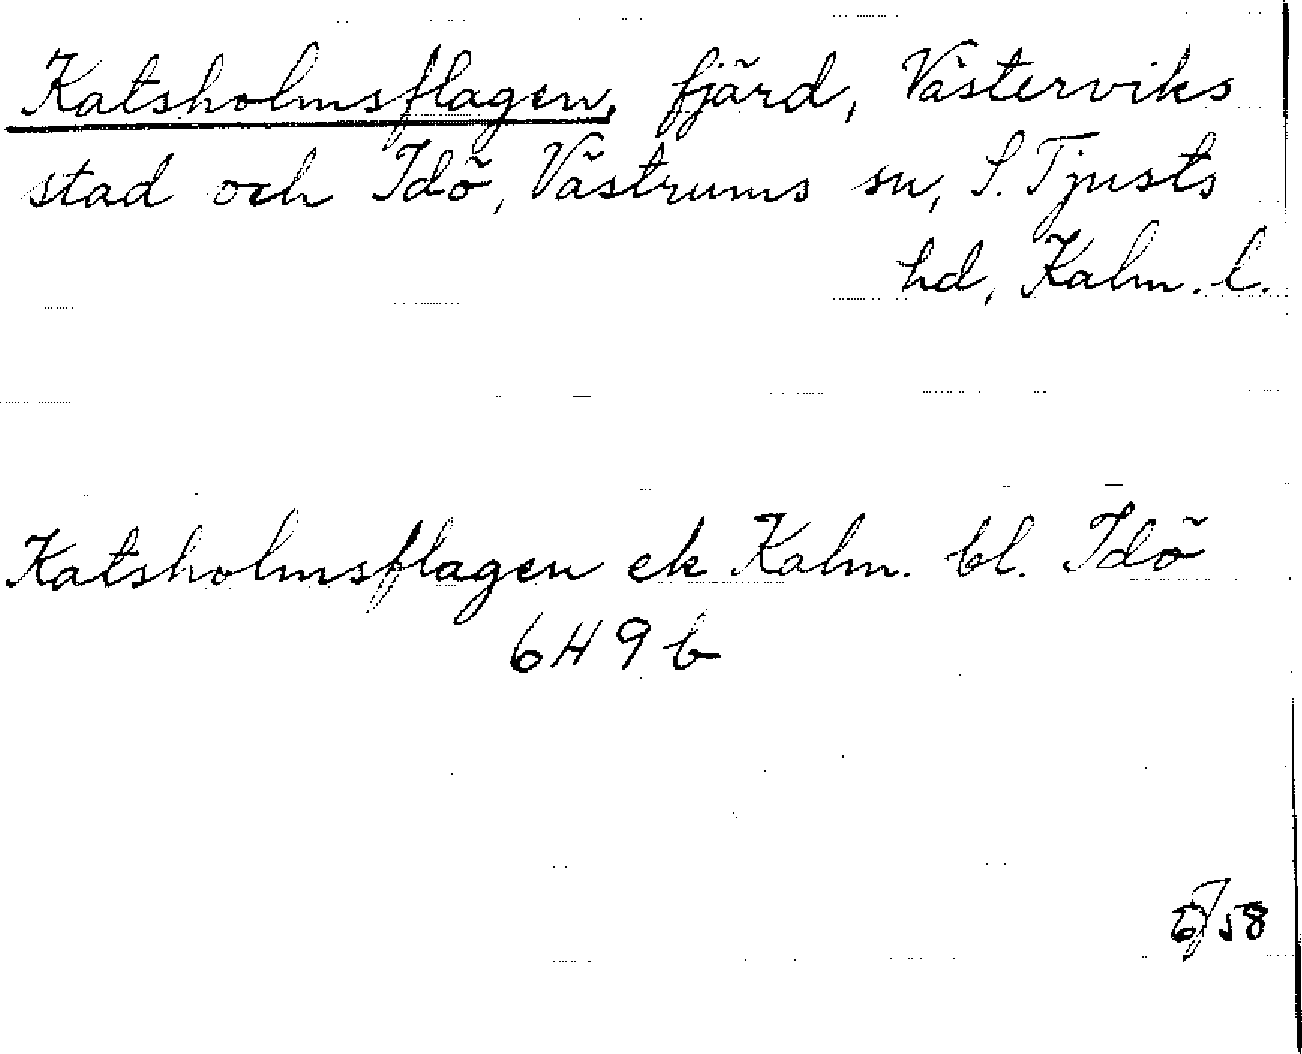 Katsholmsflagen, fjärd, Västerviks
stad och Idö, Västrums sn, S. Tjusts
hd, Kalm. l.
Katsholmsflagen ek Kalm. bl. Idö
6H9b